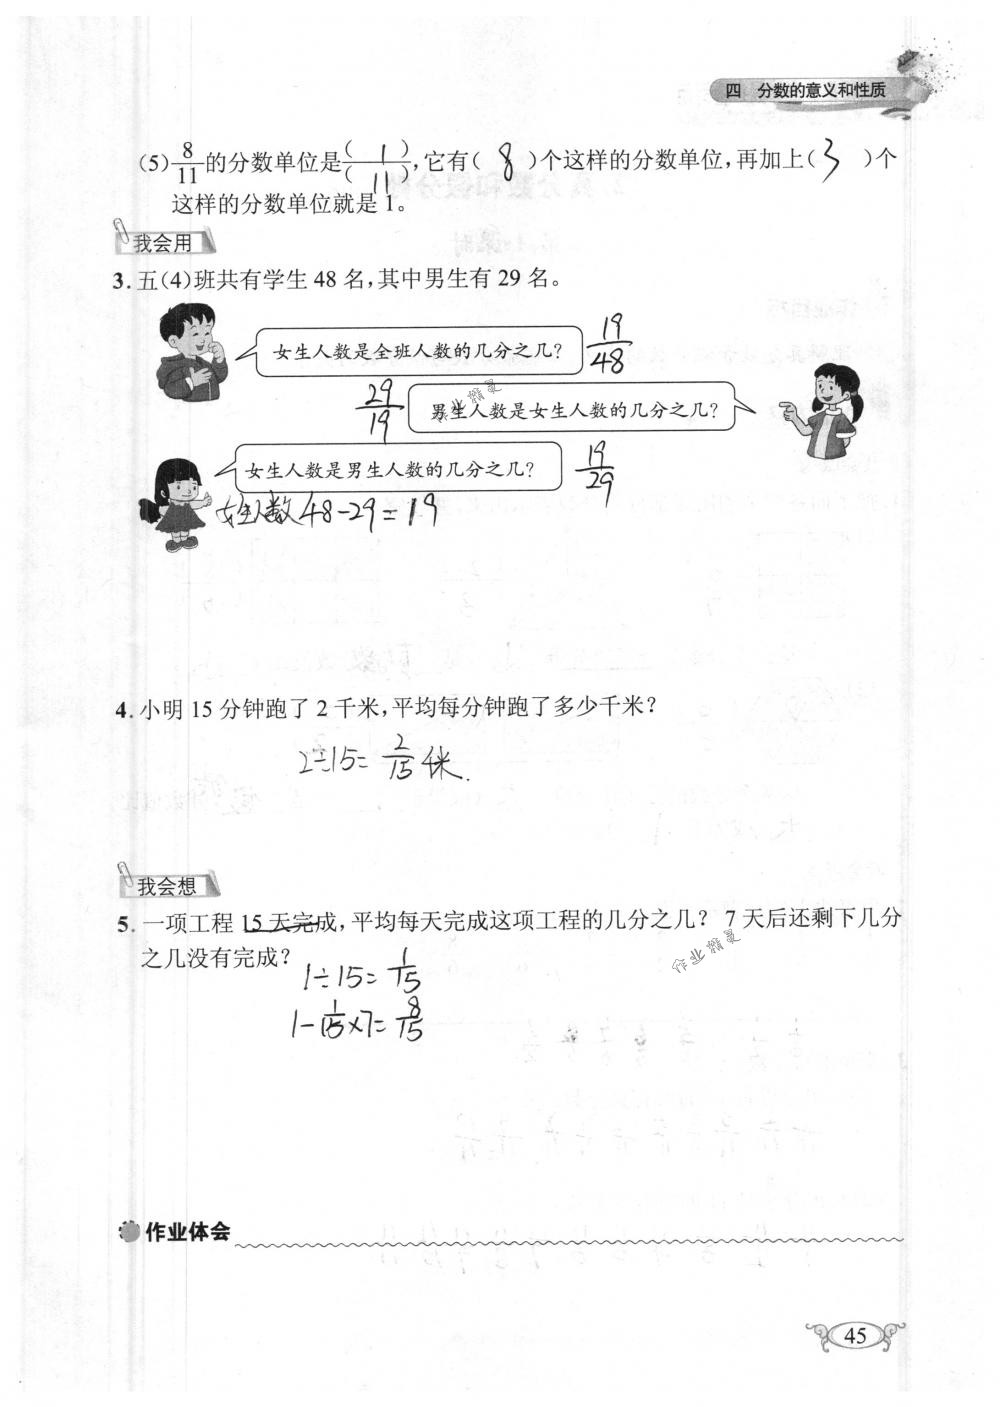 四 分数的意义和性质
(5) 8/11 的分数单位是 (1)/(11),它有( 8 )个这样的分数单位,再加上( 3 )个
这样的分数单位就是 1。
我会用
3. 五(4)班共有学生 48 名,其中男生有 29 名。
女生人数是全班人数的几分之几? 19/48
29/19 男生人数是女生人数的几分之几?
作业精灵
女生人数是男生人数的几分之几? 19/29
女生人数 48-29=19
4. 小明 15 分钟跑了 2 千米,平均每分钟跑了多少千米?
2÷15= 2/15 千米.
我会想
5. 一项工程 15 天完成,平均每天完成这项工程的几分之几? 7 天后还剩下几分
之几没有完成?
作业精灵
1÷15= 1/15
1- 1/15 ×7= 8/15
作业体会
45